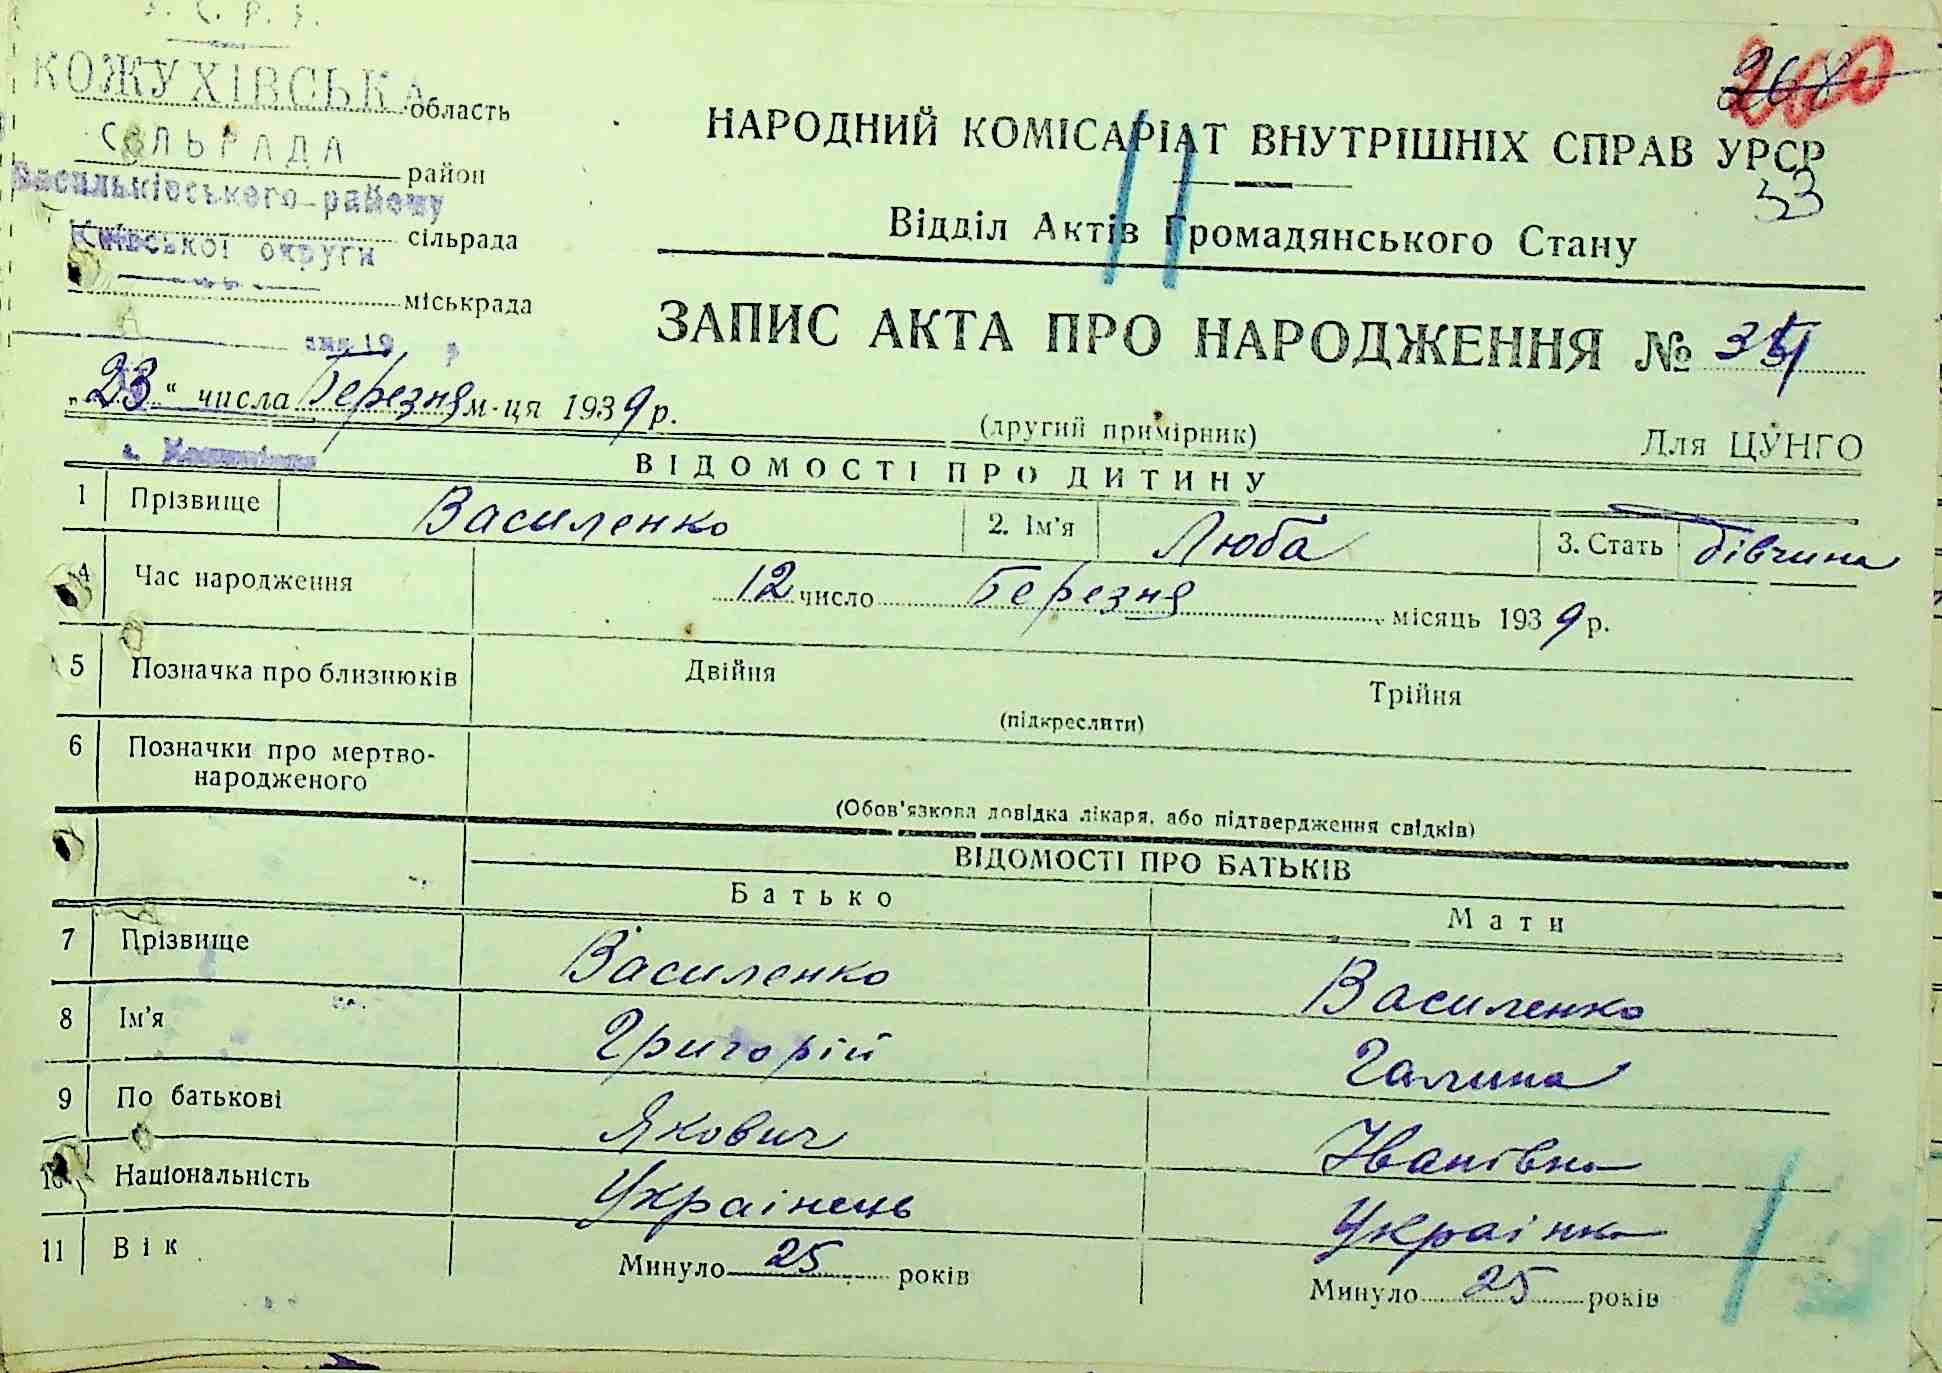 У. С. Р. Р.
КОЖУХІВСЬКА область
СІЛЬРАДА район
Васильківського району
сільрада
Київської округи
міськрада
260
53
НАРОДНИЙ КОМІСАРІАТ ВНУТРІШНІХ СПРАВ УРСР
Відділ Актів Громадянського Стану
ЗАПИС АКТА ПРО НАРОДЖЕННЯ №
„23“ числа Березня м-ця 1939 р.
(другий примірник) Для ЦУНГО
ВІДОМОСТІ ПРО ДИТИНУ
1 Прізвище Василенко 2. Ім'я Люба 3. Стать дівчина
4 Час народження 12 число Березня місяць 1939 р.
5 Позначка про близнюків Двійня Трійня
(підкреслити)
6 Позначки про мертво-
народженого
(Обов'язкова довідка лікаря, або підтвердження свідків)
ВІДОМОСТІ ПРО БАТЬКІВ
Батько Мати
7 Прізвище Василенко Василенко
8 Ім'я Григорій Галина
9 По батькові Якович Іванівна
10 Національність Украінець Украінка
11 Вік Минуло 25 років Минуло 25 років